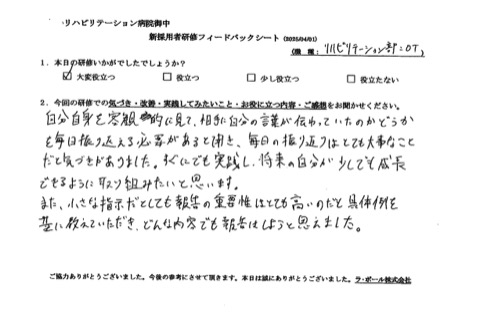 ・リハビリテーション病院御中
新採用者研修フィードバックシート (2025/04/01)
(職 種: リハビリテーション部:OT)
1．本日の研修いかがでしたでしょうか?
☑ 大変役立つ □ 役立つ □ 少し役立つ □ 役立たない
2．今回の研修での気づき・改善・実践してみたいこと・お役に立つ内容・ご感想をお聞かせください。
自分自身を客観的に見て、相手に自分の言葉が伝わっていたのかどうか
を毎日振り返える必要があると聞き、毎日の振り返りはとても大事なこと
だと気づきがありました。すぐにでも実践し、将来の自分が少しでも成長
できるように取り組みたいと思います。
また、小さな指示だとしても報告の重要性はとても高いのだと具体例を
基に教えていただき、どんな内容でも報告はしようと思えました。
ご協力ありがとうございました。今後の参考にさせて頂きます。本日は誠にありがとうございました。ラ・ポール株式会社